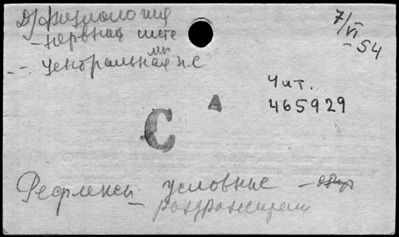 Д) Физиология
- нервная систе
мы
- центральная н.с
7/VI
-54
Чит.
465929
А
С
Рефлексы условные - общ
- раздражители